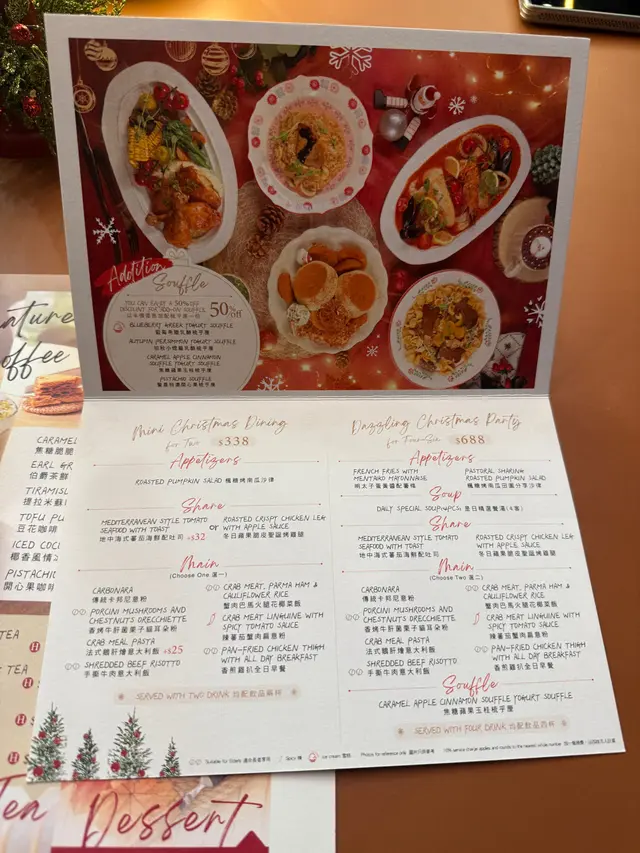 Addition
Souffle
YOU CAN ENJOY A 50% OFF
DISCOUNT FOR ADD-ON SOUFFLE
50%
off
BLUEBERRY GREEK YOGURT SOUFFLE
AUTUMN PERSIMMON YOGURT SOUFFLE
CARAMEL APPLE CINNAMON
SOUFFLE YOGURT SOUFFLE
焦糖蘋果玉桂梳乎厘
PISTACHIO SOUFFLE
Mini Christmas Dining
for Two $338
Appetizers
ROASTED PUMPKIN SALAD 楓糖烤南瓜沙律
Share
MEDITERRANEAN STYLE TOMATO
SEAFOOD WITH TOAST
地中海式蕃茄海鮮配吐司 +$32
or
ROASTED CRISPY CHICKEN LEG
WITH APPLE SAUCE
冬日蘋果脆皮聖誕烤雞腿
Main
(Choose One 選一)
CARBONARA
傳統卡邦尼意粉
PORCINI MUSHROOMS AND
CHESTNUTS ORECCHIETTE
香烤牛肝菌栗子貓耳朵粉
CRAB MEAL PASTA
法式鵝肝燴意大利飯 +$25
SHREDDED BEEF RISOTTO
手撕牛肉意大利飯
CRAB MEAT, PARMA HAM &
CAULIFLOWER RICE
蟹肉巴馬火腿花椰菜飯
CRAB MEAT LINGUINE WITH
SPICY TOMATO SAUCE
辣蕃茄蟹肉扁意粉
PAN-FRIED CHICKEN THIGH
WITH ALL DAY BREAKFAST
香煎雞扒全日早餐
SERVED WITH TWO DRINK 均配飲品兩杯
Dazzling Christmas Party
for Four-Six $688
Appetizers
FRENCH FRIES WITH
MENTAIKO MAYONNAISE
明太子蛋黃醬配薯條
PASTORAL SHARING
ROASTED PUMPKIN SALAD
楓糖烤南瓜田園分享沙律
Soup
DAILY SPECIAL SOUP(4PCS) 是日精選餐湯(4客)
Share
MEDITERRANEAN STYLE TOMATO
SEAFOOD WITH TOAST
地中海式蕃茄海鮮配吐司
ROASTED CRISPY CHICKEN LEG
WITH APPLE SAUCE
冬日蘋果脆皮聖誕烤雞腿
Main
(Choose Two 選二)
CARBONARA
傳統卡邦尼意粉
PORCINI MUSHROOMS AND
CHESTNUTS ORECCHIETTE
香烤牛肝菌栗子貓耳朵粉
CRAB MEAL PASTA
法式鵝肝燴意大利飯
SHREDDED BEEF RISOTTO
手撕牛肉意大利飯
CRAB MEAT, PARMA HAM &
CAULIFLOWER RICE
蟹肉巴馬火腿花椰菜飯
CRAB MEAT LINGUINE WITH
SPICY TOMATO SAUCE
辣蕃茄蟹肉扁意粉
PAN-FRIED CHICKEN THIGH
WITH ALL DAY BREAKFAST
香煎雞扒全日早餐
Souffle
CARAMEL APPLE CINNAMON SOUFFLE YOGURT SOUFFLE
焦糖蘋果玉桂梳乎厘
SERVED WITH FOUR DRINK 均配飲品四杯
Spicy 辣
Photos for reference only
ature
offee
CARAMEL
焦糖脆脆
EARL GR
伯爵茶鮮
TIRAMIS
提拉米蘇
TOFU PU
豆花咖啡
ICED COC
椰香風情
PISTACHI
開心果咖啡
TEA
TEA
H
H
Tea
Dessert